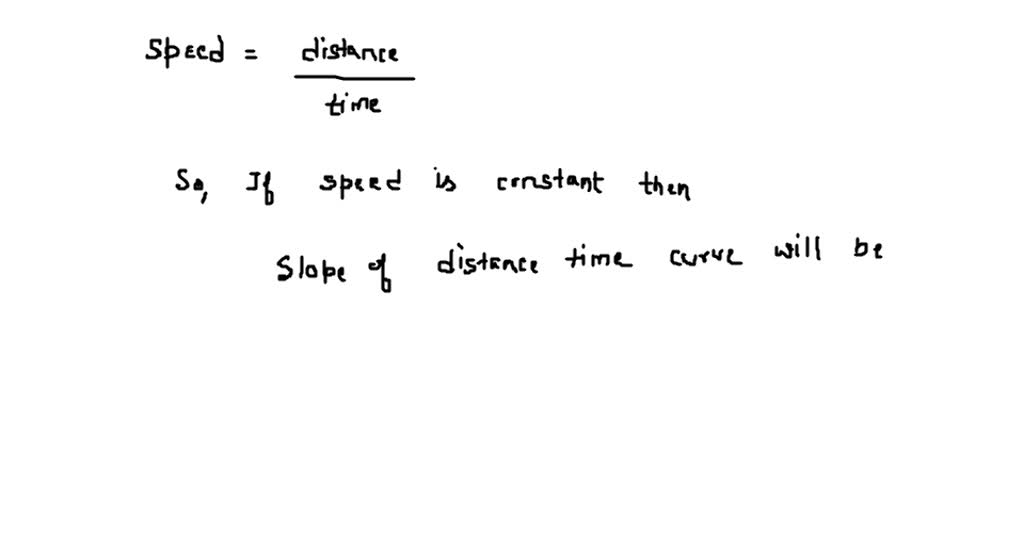 Speed = distance
time
So, If speed is constant then
Slope of distance time curve will be